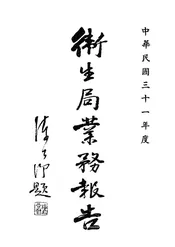 中華民國三十一年度
衛生局業務報告
題